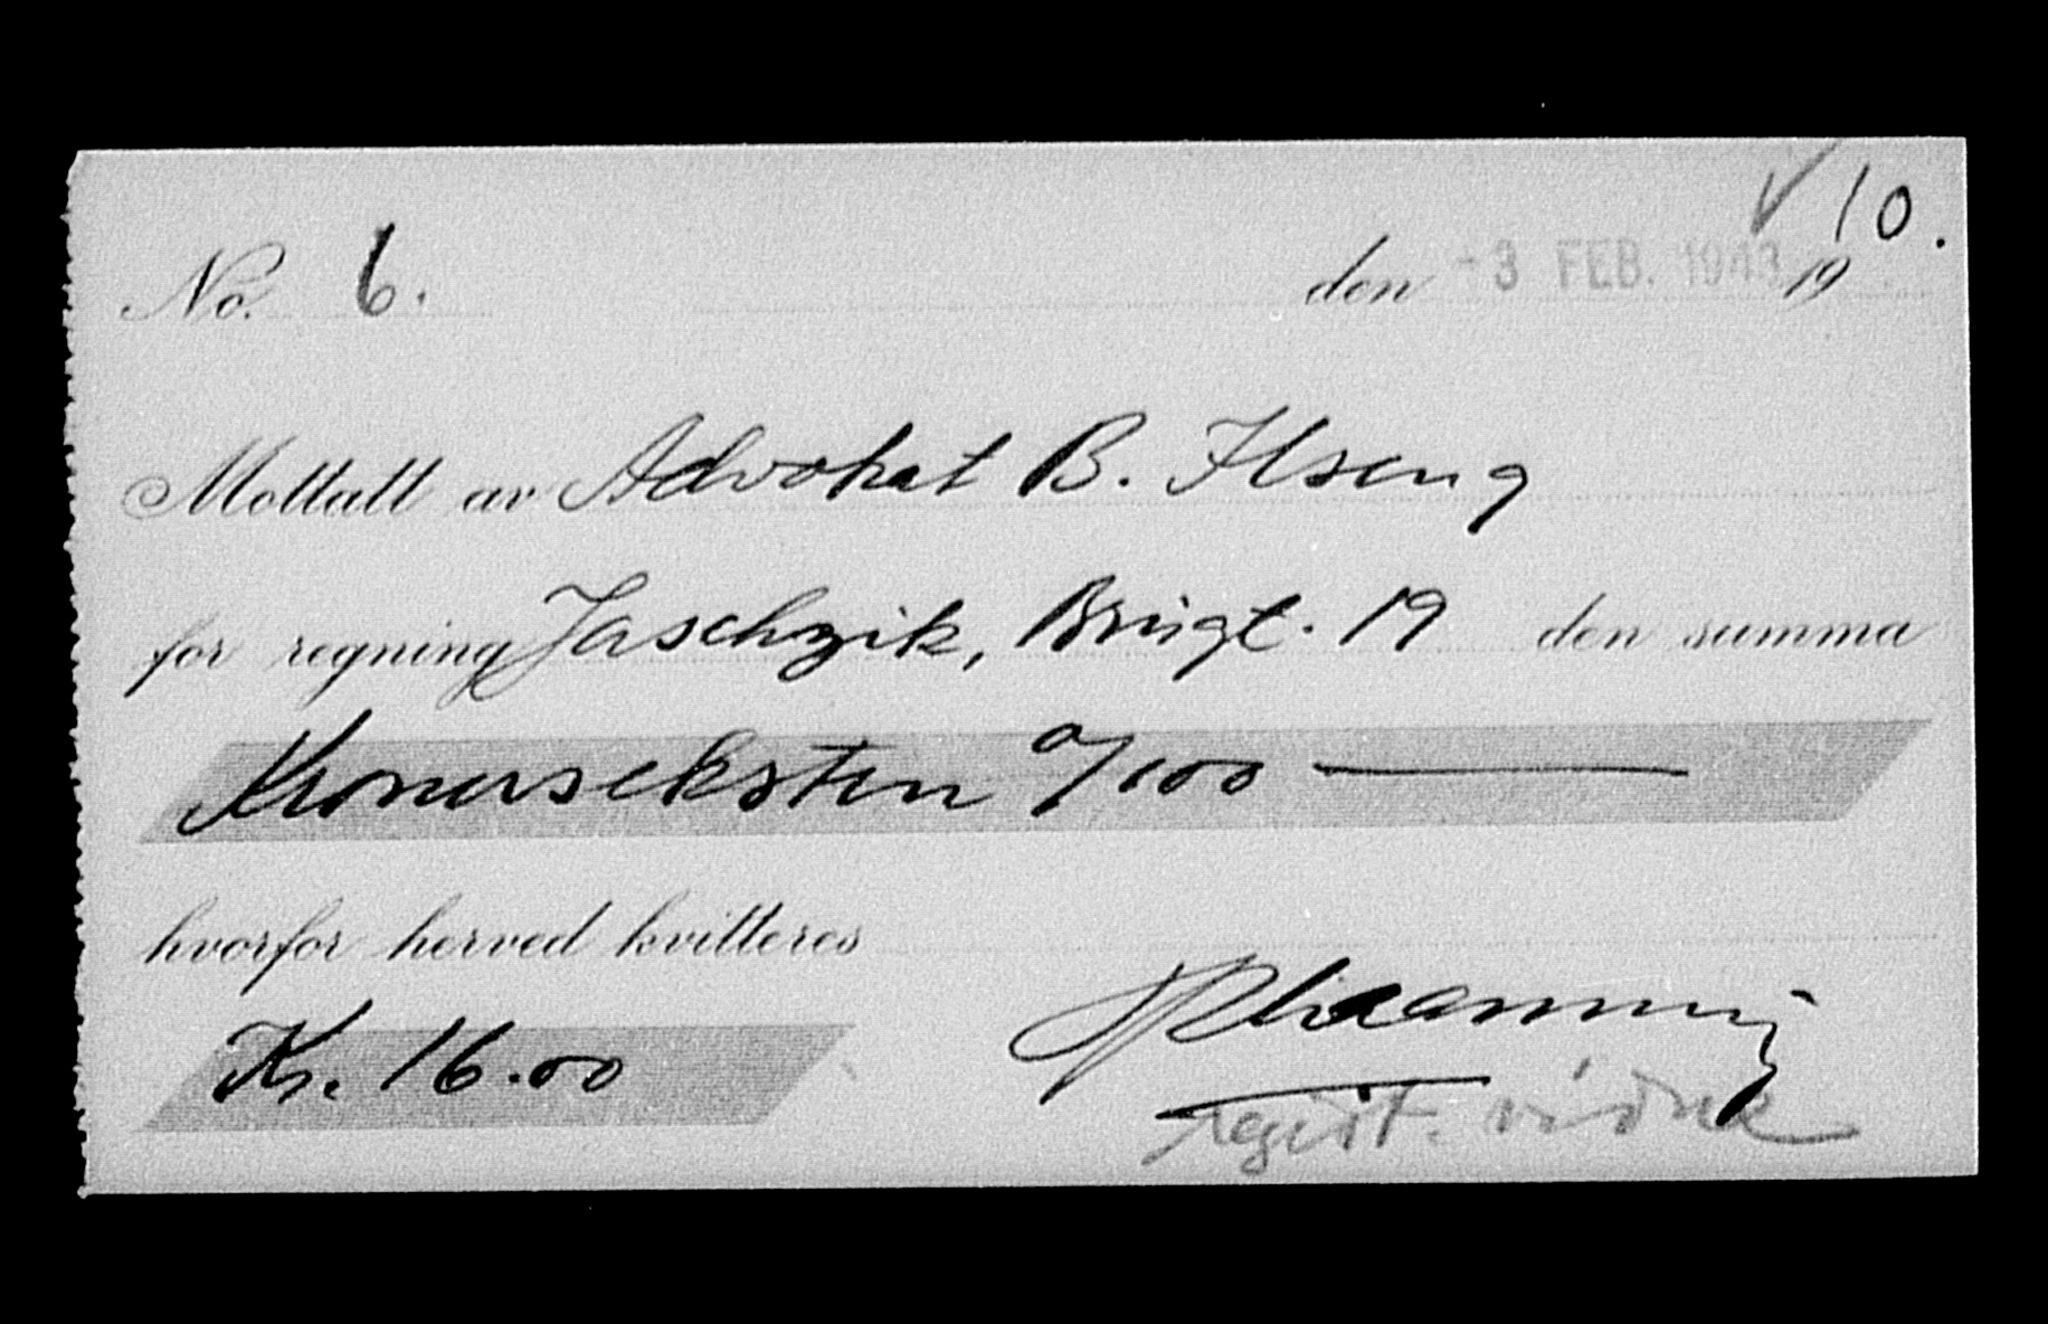 ✓ 10.
No. 6. den -3 FEB. 1943 19
Mottatt av Advokat B. Ilseng
for regning Jaschzik, Brugt. 19 den summa
Kronerseksten 0/100 —
hvorfor herved kvitteres
Kr. 16.00
regist.